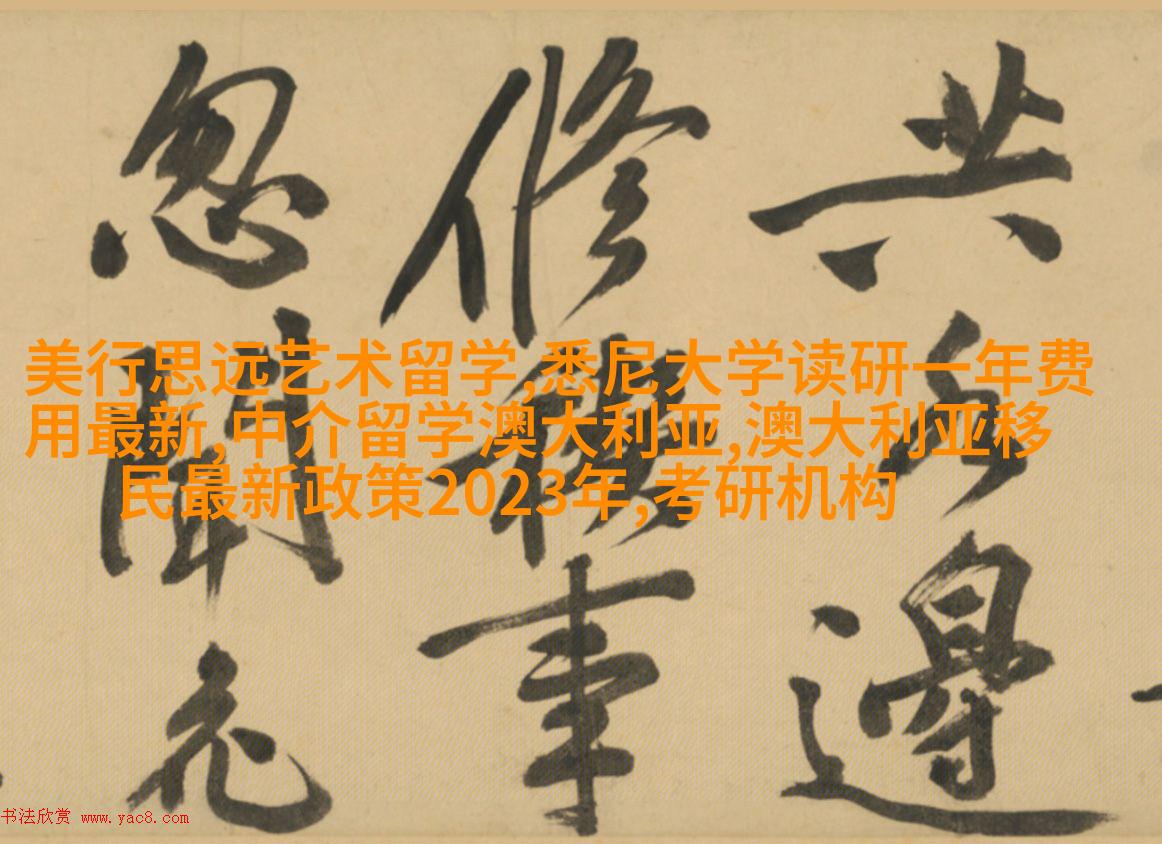 美行思远艺术留学,悉尼大学读研一年费
用最新,中介留学澳大利亚,澳大利亚移
民最新政策2023年,考研机构
共邊
修禊事
忽聞
书法欣赏 www.yac8.com